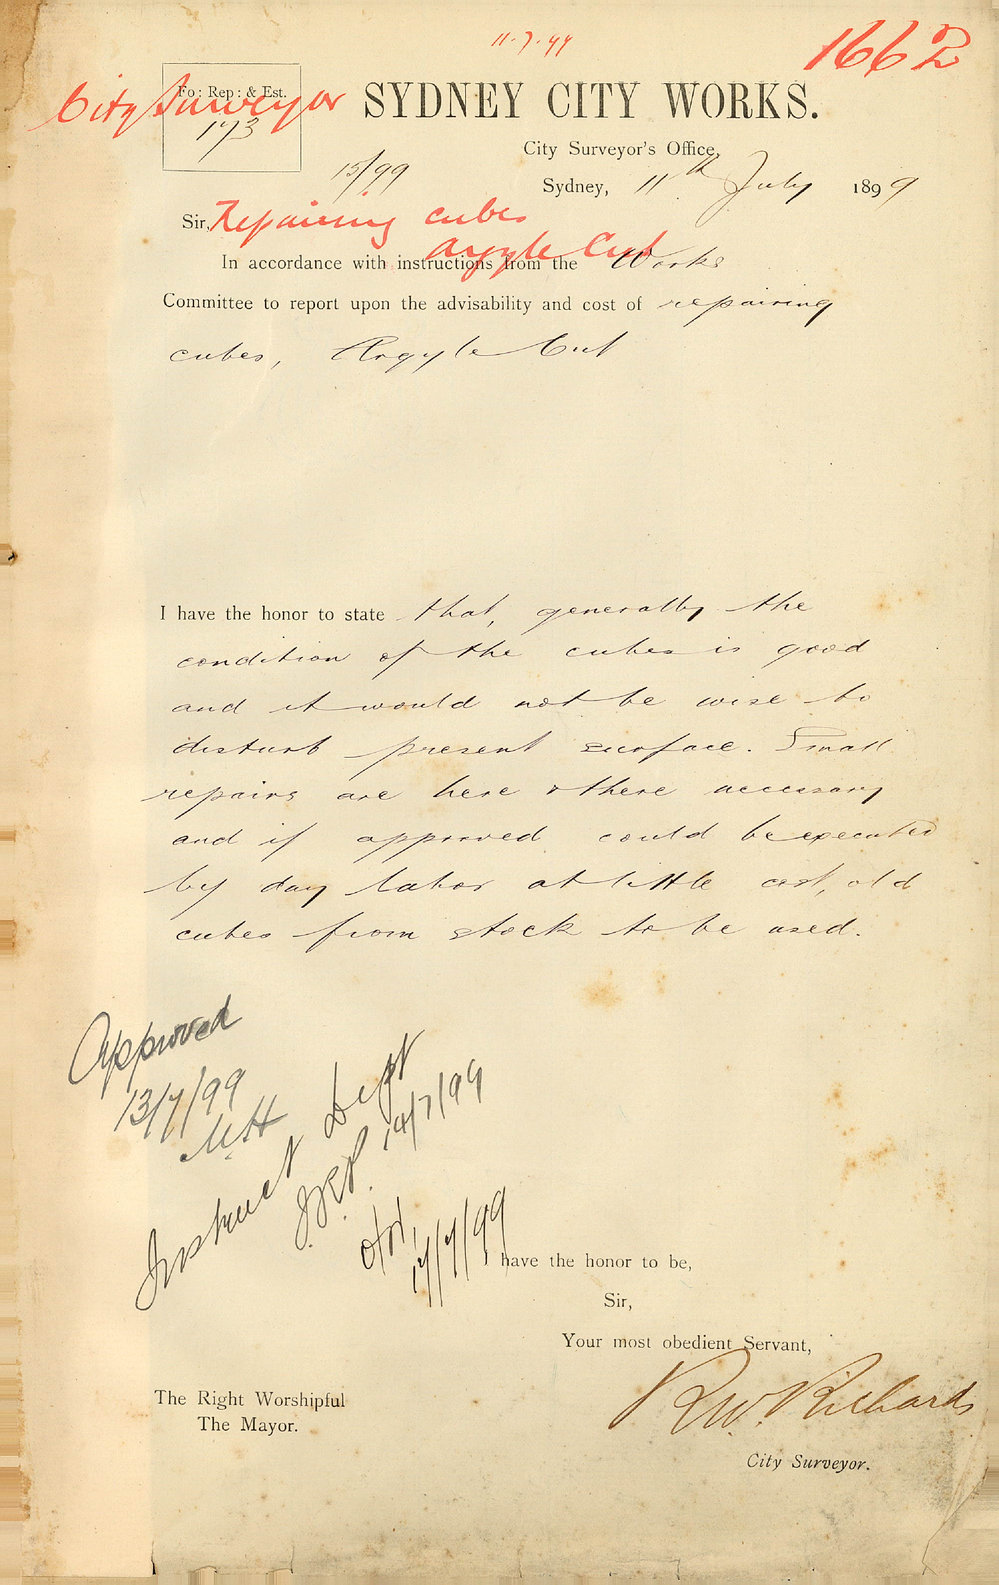 11.7.99
1662
City Surveyor
Fo: Rep: & Est.
173
SYDNEY CITY WORKS.
City Surveyor's Office,
15/99
Sydney, 11th July 1899
Sir,
Repairing cubes
Argyle Cut
In accordance with instructions from the Works
Committee to report upon the advisability and cost of repairing
cubes, Argyle Cut
I have the honor to state that, generally the
condition of the cubes is good
and it would not be wise to
disturb present surface. Small
repairs are here & there necessary
and if approved could be executed
by day labor at little cost, old
cubes from stock to be used.
Approved
13/7/99
Instruct Dept
14/7/99
17/7/99
I have the honor to be,
Sir,
Your most obedient Servant,
R.W. Richards
City Surveyor.
The Right Worshipful
The Mayor.